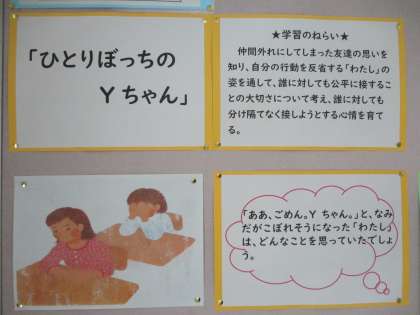 「ひとりぼっちの
Yちゃん」
★学習のねらい★
仲間外れにしてしまった友達の思いを
知り、自分の行動を反省する「わたし」の
姿を通して、誰に対しても公平に接するこ
との大切さについて考え、誰に対しても
分け隔てなく接しようとする心情を育て
る。
「ああ、ごめん。Yちゃん。」と、なみ
だがこぼれそうになった「わたし」
は、どんなことを思っていたでしょ
う。